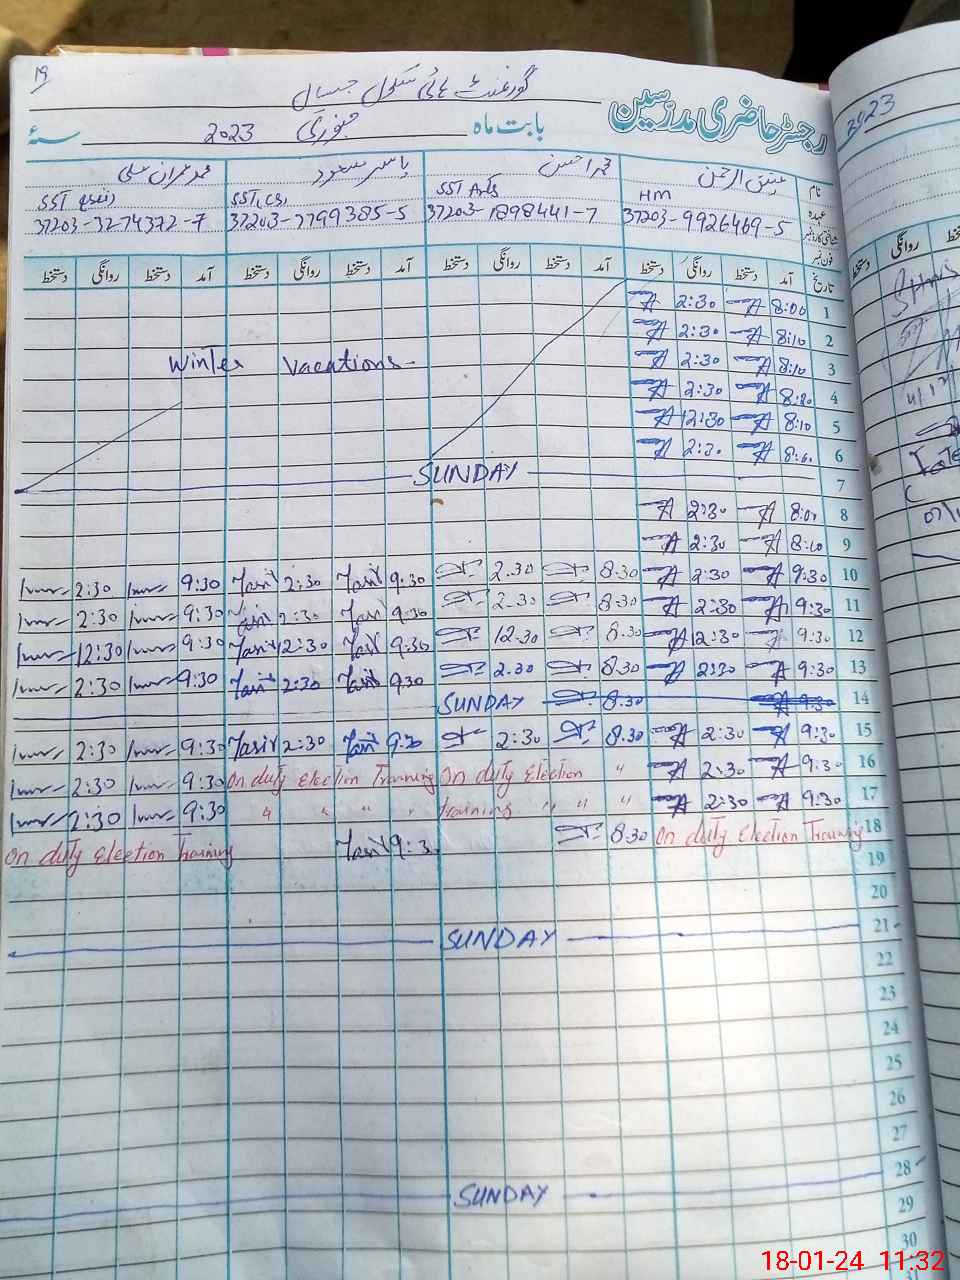 19
گورنمنٹ ہائی سکول جسال
رجسٹر حاضری مدرسین
بابت ماہ جنوری 2023 سنۂ
2023
نام عتیق الرحمن محمد احسن یاسر مسعود محمد عمران علی
عہدہ HM SST Arts SST(CS) SST
شناختی کارڈ نمبر 37203-9926469-5 37203-1898441-7 37203-7799385-5 37203-3274372-7
فون نمبر
تاریخ آمد دستخط روانگی دستخط آمد دستخط روانگی دستخط آمد دستخط روانگی دستخط آمد دستخط روانگی دستخط
روانگی دستخط
2:30 8:00 1
2:30 8:10 2
Winter Vacations 2:30 8:10 3
2:30 4
12:30 8:10 5
2:30 6
SUNDAY 7
2:30 8
2:30 8:10 9
2:30 9:30 Yasir 2:30 Yasir 9:30 2.30 8.30 2:30 9:30 10
2:30 9:30 Yasir 2:30 Yasir 9:30 2.30 8.30 2:30 9:30 11
12:30 9:30 Yasir 12:30 Yasir 9:30 12.30 8.30 12:30 9:30 12
2:30 9:30 Yasir 2:30 Yasir 9:30 2.30 8.30 2:30 9:30 13
SUNDAY 8.30 9:30 14
2:30 9:30 Yasir 2:30 Yasir 9:30 2:30 8.30 2:30 9:30 15
2:30 9:30 On duty Election Training On duty Election " 2:30 9:30 16
2:30 9:30 " " " " training " " " 2:30 9:30 17
On duty Election Training Yasir 9:30 8.30 On duty Election Training 18
19
20
SUNDAY 21
22
23
24
25
26
27
SUNDAY 28
29
30
18-01-24 11:32